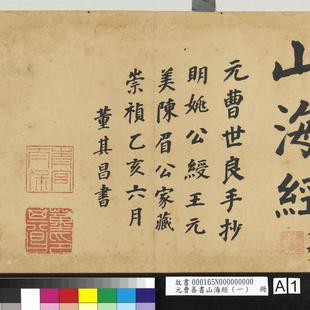 山海經
元曹世良手抄
明姚公綬王元
美陳眉公家藏
崇禎乙亥六月
董其昌書
故書 000165N000000000
元曹善書山海經(一) 冊
A 1